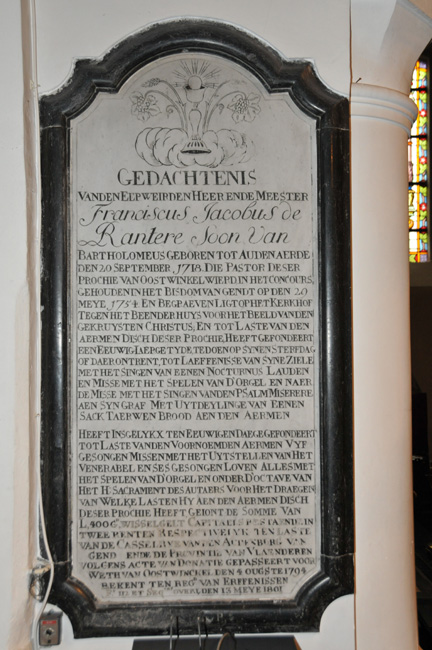 GEDACHTENIS
VANDEN EERWEIRDEN HEER ENDE MEESTER
Franciscus Jacobus de
Rantere Soon Van
BARTHOLOMEUS GEBOREN TOT AUDENAERDE
DEN 20 SEPTEMBER 1718. DIE PASTOR DESER
PROCHIE VAN OOSTWINKEL WIERD IN HET CONCOURS,
GEHOUDEN IN HET BISDOM VAN GENDT OP DEN 20
MEYE 1754. EN BEGRAEVEN LIGT OP HET KERKHOF
TEGEN HET BEENDERHUYS VOOR HET BEELD VANDEN
GEKRUYSTEN CHRISTUS, EN TOT LASTE VAN DEN
AERMEN DISCH DESER PROCHIE, HEEFT GEFONDEERT
EEN EEUWIG JAERGETYDE, TE DOEN OP SYNEN STERFDAG
OF DAER ONTRENT, TOT LAEFFENISSE VAN SYNE ZIELE
MET HET SINGEN VAN EENEN NOCTURNUS LAUDEN
EN MISSE MET HET SPELEN VAN D'ORGEL EN NAER
DE MISSE MET HET SINGEN VANDEN PSALM MISERERE
AEN SYN GRAF MET UYTDEYLINGE VAN EENEN
SACK TAERWEN BROOD AEN DEN AERMEN
HEEFT INSGELYKX TEN EEUWIGEN DAEGE GEFONDEERT
TOT LASTE VANDEN VOORNOEMDEN AERMEN VYF
GESONGEN MISSEN MET HET UYTSTELLEN VAN HET
VENERABEL EN SES GESONGEN LOVEN ALLES MET
HET SPELEN VAN D'ORGEL EN ONDER D'OCTAVE VAN
HET H: SACRAMENT DES AUTAERS VOOR HET DRAEGEN
VAN WELKE LASTEN HY AEN DEN AERMEN DISCH
DESER PROCHIE HEEFT GEJONT DE SOMME VAN
WISSELGELT CAPITAELS BESTAENDE IN
TWEE RENTEN RESPECTIVELYK TEN LASTE
VAN DE CASSELRYE VAN TEN AUTENBURG VAN
GEND ENDE DE PROVINTIE VAN VLAENDEREN
VOLGENS ACTE VAN DONATIE GEPASSEERT VOOR
WETH VAN OOSTWINCKEL DEN 4 OUGSTE 1794
BEKENT TEN REG: VAN ERFFENISSEN
OVERLEDEN 13 MEYE 1801